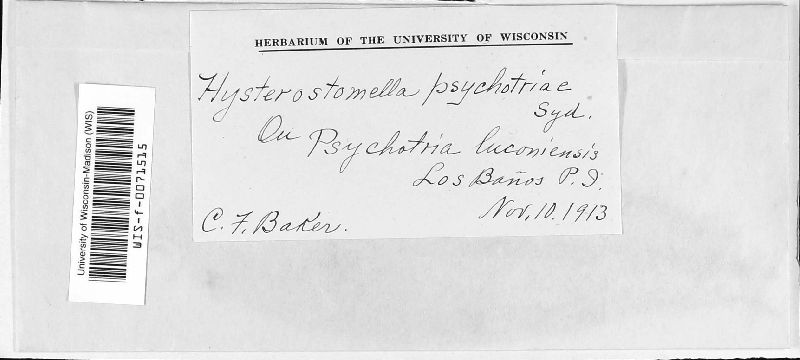 HERBARIUM OF THE UNIVERSITY OF WISCONSIN
Hysterostomella psychotriae
Syd.
On Psychotria luconiensis
Los Baños P.I.
Nov. 10. 1913
C. F. Baker.
University of Wisconsin-Madison (WIS)
WIS-f-0071515